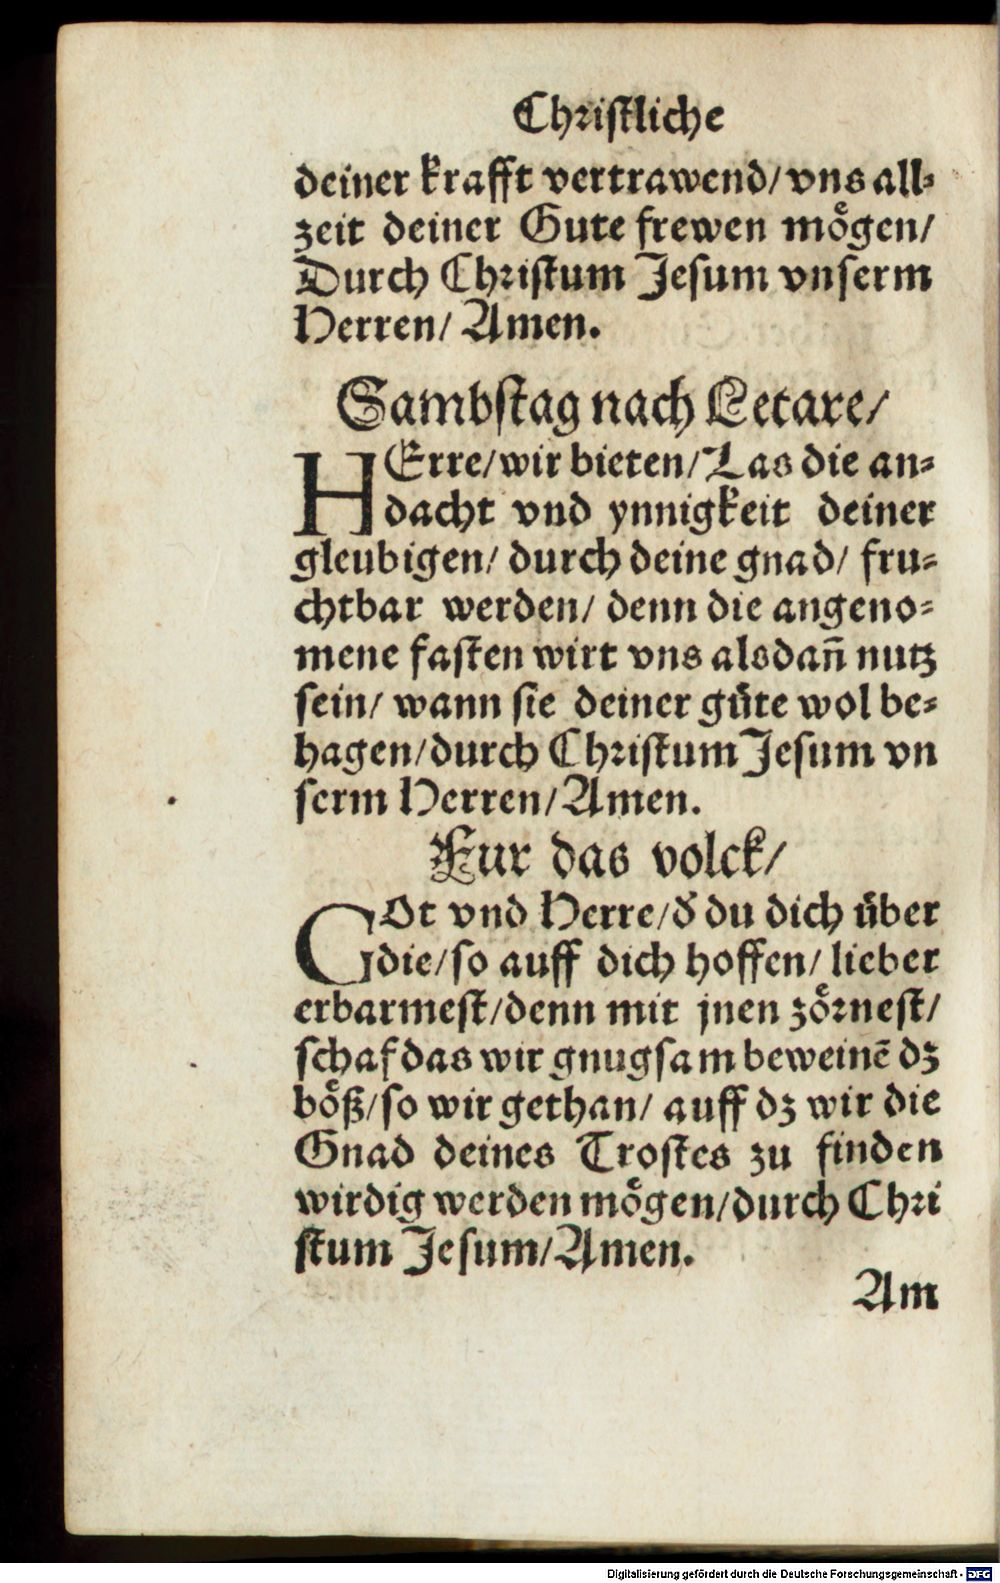 Christliche
deiner krafft vertrawend/ vns all⸗
zeit deiner Gute frewen moͤgen/
Durch Christum Jesum vnserm
Herren/ Amen.
Sambstag nach Letare/
HErre/ wir bieten/ Las die an⸗
dacht vnd ynnigkeit deiner
gleubigen/ durch deine gnad/ fru⸗
chtbar werden/ denn die angeno⸗
mene fasten wirt vns alsdañ nutz
sein/ wann sie deiner guͤte wol be⸗
hagen/ durch Christum Jesum vn
serm Herren/ Amen.
Fur das volck/
GOt vnd Herre/ d̕ du dich uͤber
die/ so auff dich hoffen/ lieber
erbarmest/ denn mit jnen zoͤrnest/
schaf das wir gnugsam beweinē dz
boͤß/ so wir gethan/ auff dz wir die
Gnad deines Trostes zu finden
wirdig werden moͤgen/ durch Chri
stum Jesum/ Amen.
Am
Digitalisierung gefördert durch die Deutsche Forschungsgemeinschaft - DFG